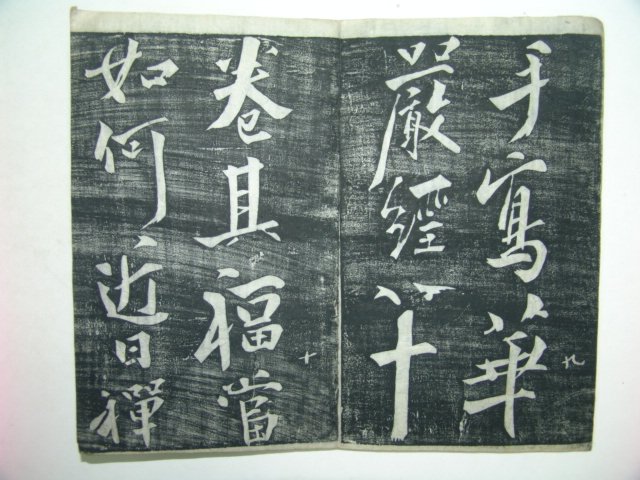 手寫華
九
嚴經八十
卷其福當
十
如何近日禪